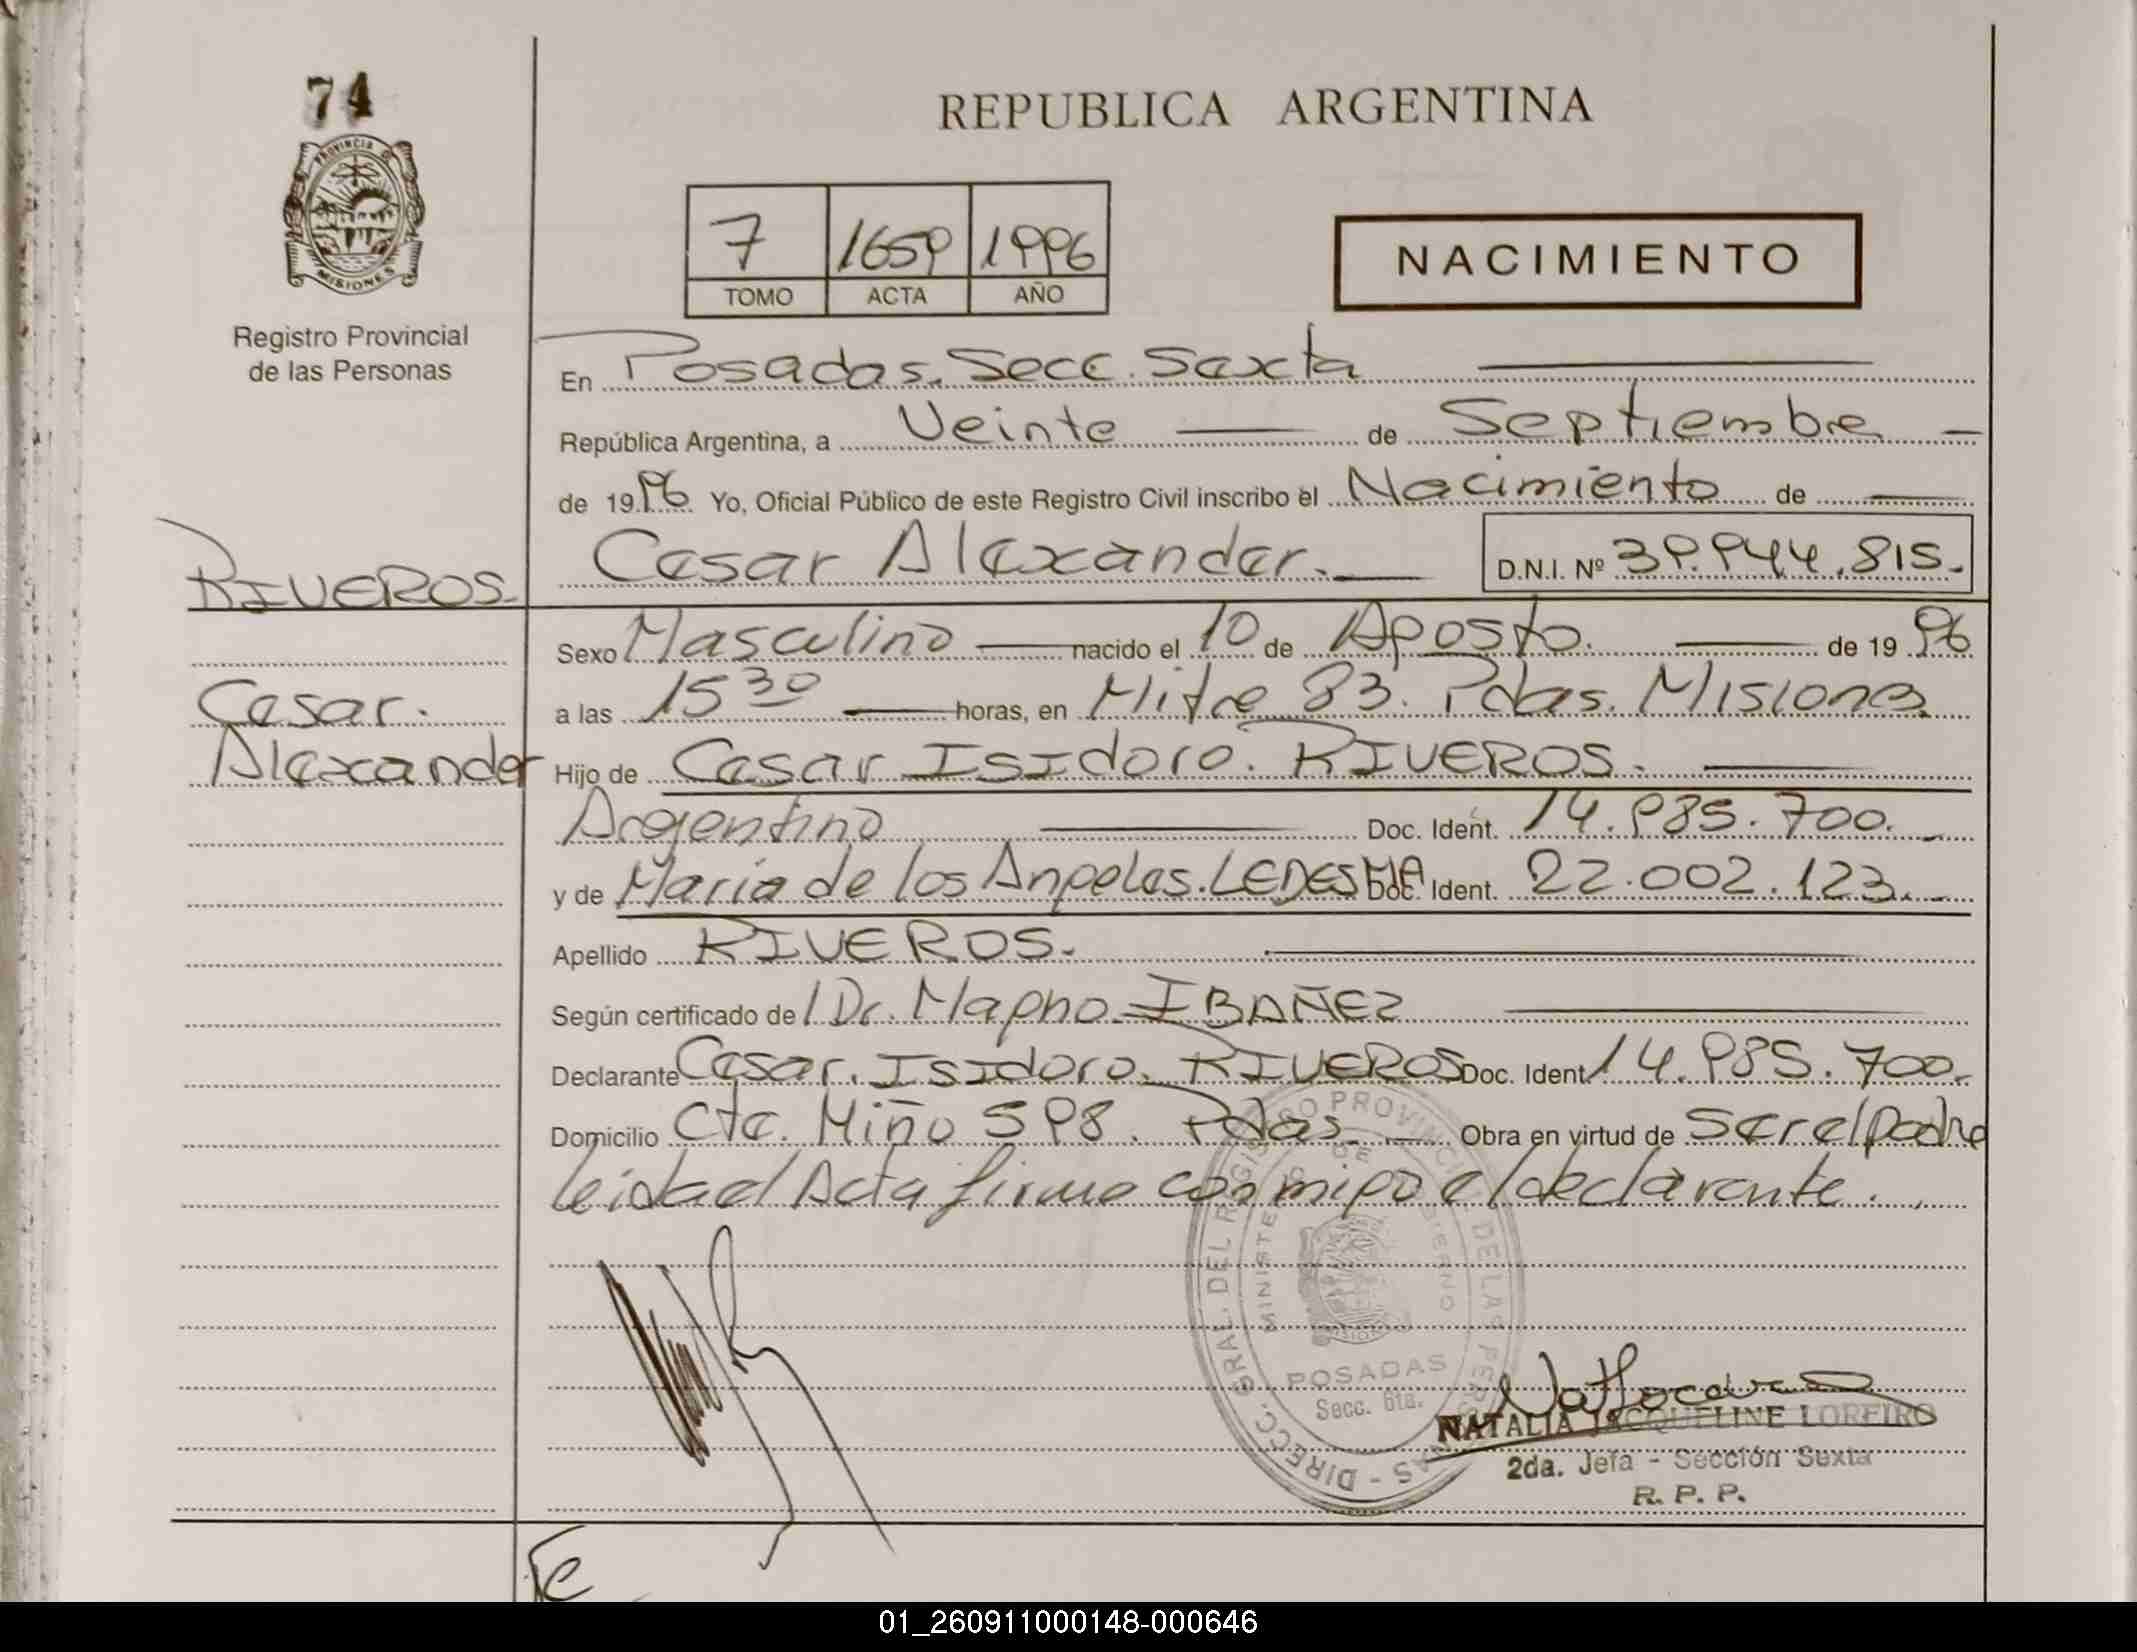 74
PROVINCIA DE
MISIONES
Registro Provincial
de las Personas
REPUBLICA ARGENTINA
7 1659 1996
TOMO ACTA AÑO
NACIMIENTO
En Posadas. Secc. Sexta
República Argentina, a Veinte de Septiembre
de 1996 Yo, Oficial Público de este Registro Civil inscribo el Nacimiento de
Cesar Alexander. D.N.I. Nº 39.944.815.
RIVEROS.
Sexo Masculino nacido el 10 de Agosto. de 1996
Cesar.
a las 15 30 horas, en Mitre 83. Pdas. Misiones
Alexander
Hijo de Cesar Isidoro. RIVEROS.
Argentino Doc. Ident. 14.985.700.
y de Maria de los Angeles. LEDESMA Doc. Ident. 22.002.123.
Apellido RIVEROS.
Según certificado de Dr. Magno IBAÑEZ
Declarante Cesar. Isidoro. RIVEROS Doc. Ident 14.985.700.
Domicilio Cte. Miño 598. Pdas. Obra en virtud de ser el padre
leida el Acta firma conmigo el declarante.
DIRECC. GRAL. DEL REGISTRO PROVINCIAL DE LAS PERSONAS
MINISTERIO DE GOBIERNO
MISIONES
POSADAS
Secc. 6ta.
NATALIA JACQUELINE LOREIRO
2da. Jefa - Sección Sexta
R. P. P.
01_260911000148-000646